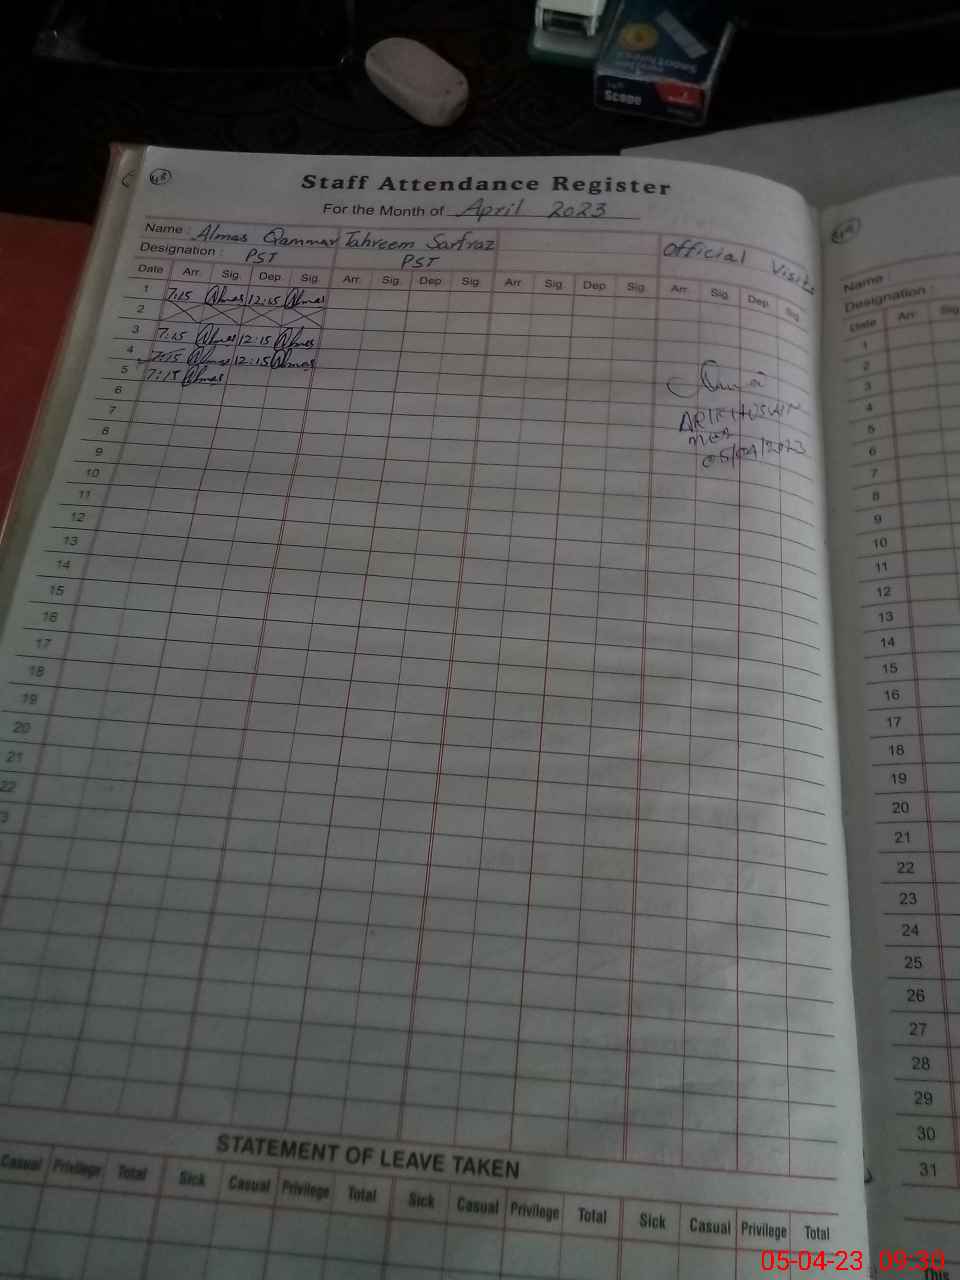 Scope
48
Staff Attendance Register
For the Month of April 2023
Name : Almas Qammar Tahreem Sarfraz Official Visits
Designation : PST PST
Date Arr. Sig. Dep. Sig. Arr. Sig. Dep. Sig. Arr. Sig. Dep. Sig. Arr. Sig. Dep. Sig.
1 7:15 Almas 12:15 Almas
2
3 7:15 Almas 12:15 Almas
4 7:15 Almas 12:15 Almas
5 7:15 Almas
6
7
8
9
10
11
12
13
14
15
16
17
18
19
20
21
22
3
05/04/2023
STATEMENT OF LEAVE TAKEN
Casual Privilege Total Sick Casual Privilege Total Sick Casual Privilege Total Sick Casual Privilege Total
Name :
Designation :
Date Arr. Sig
1
2
3
4
5
6
7
8
9
10
11
12
13
14
15
16
17
18
19
20
21
22
23
24
25
26
27
28
29
30
31
This
05-04-23 09:30